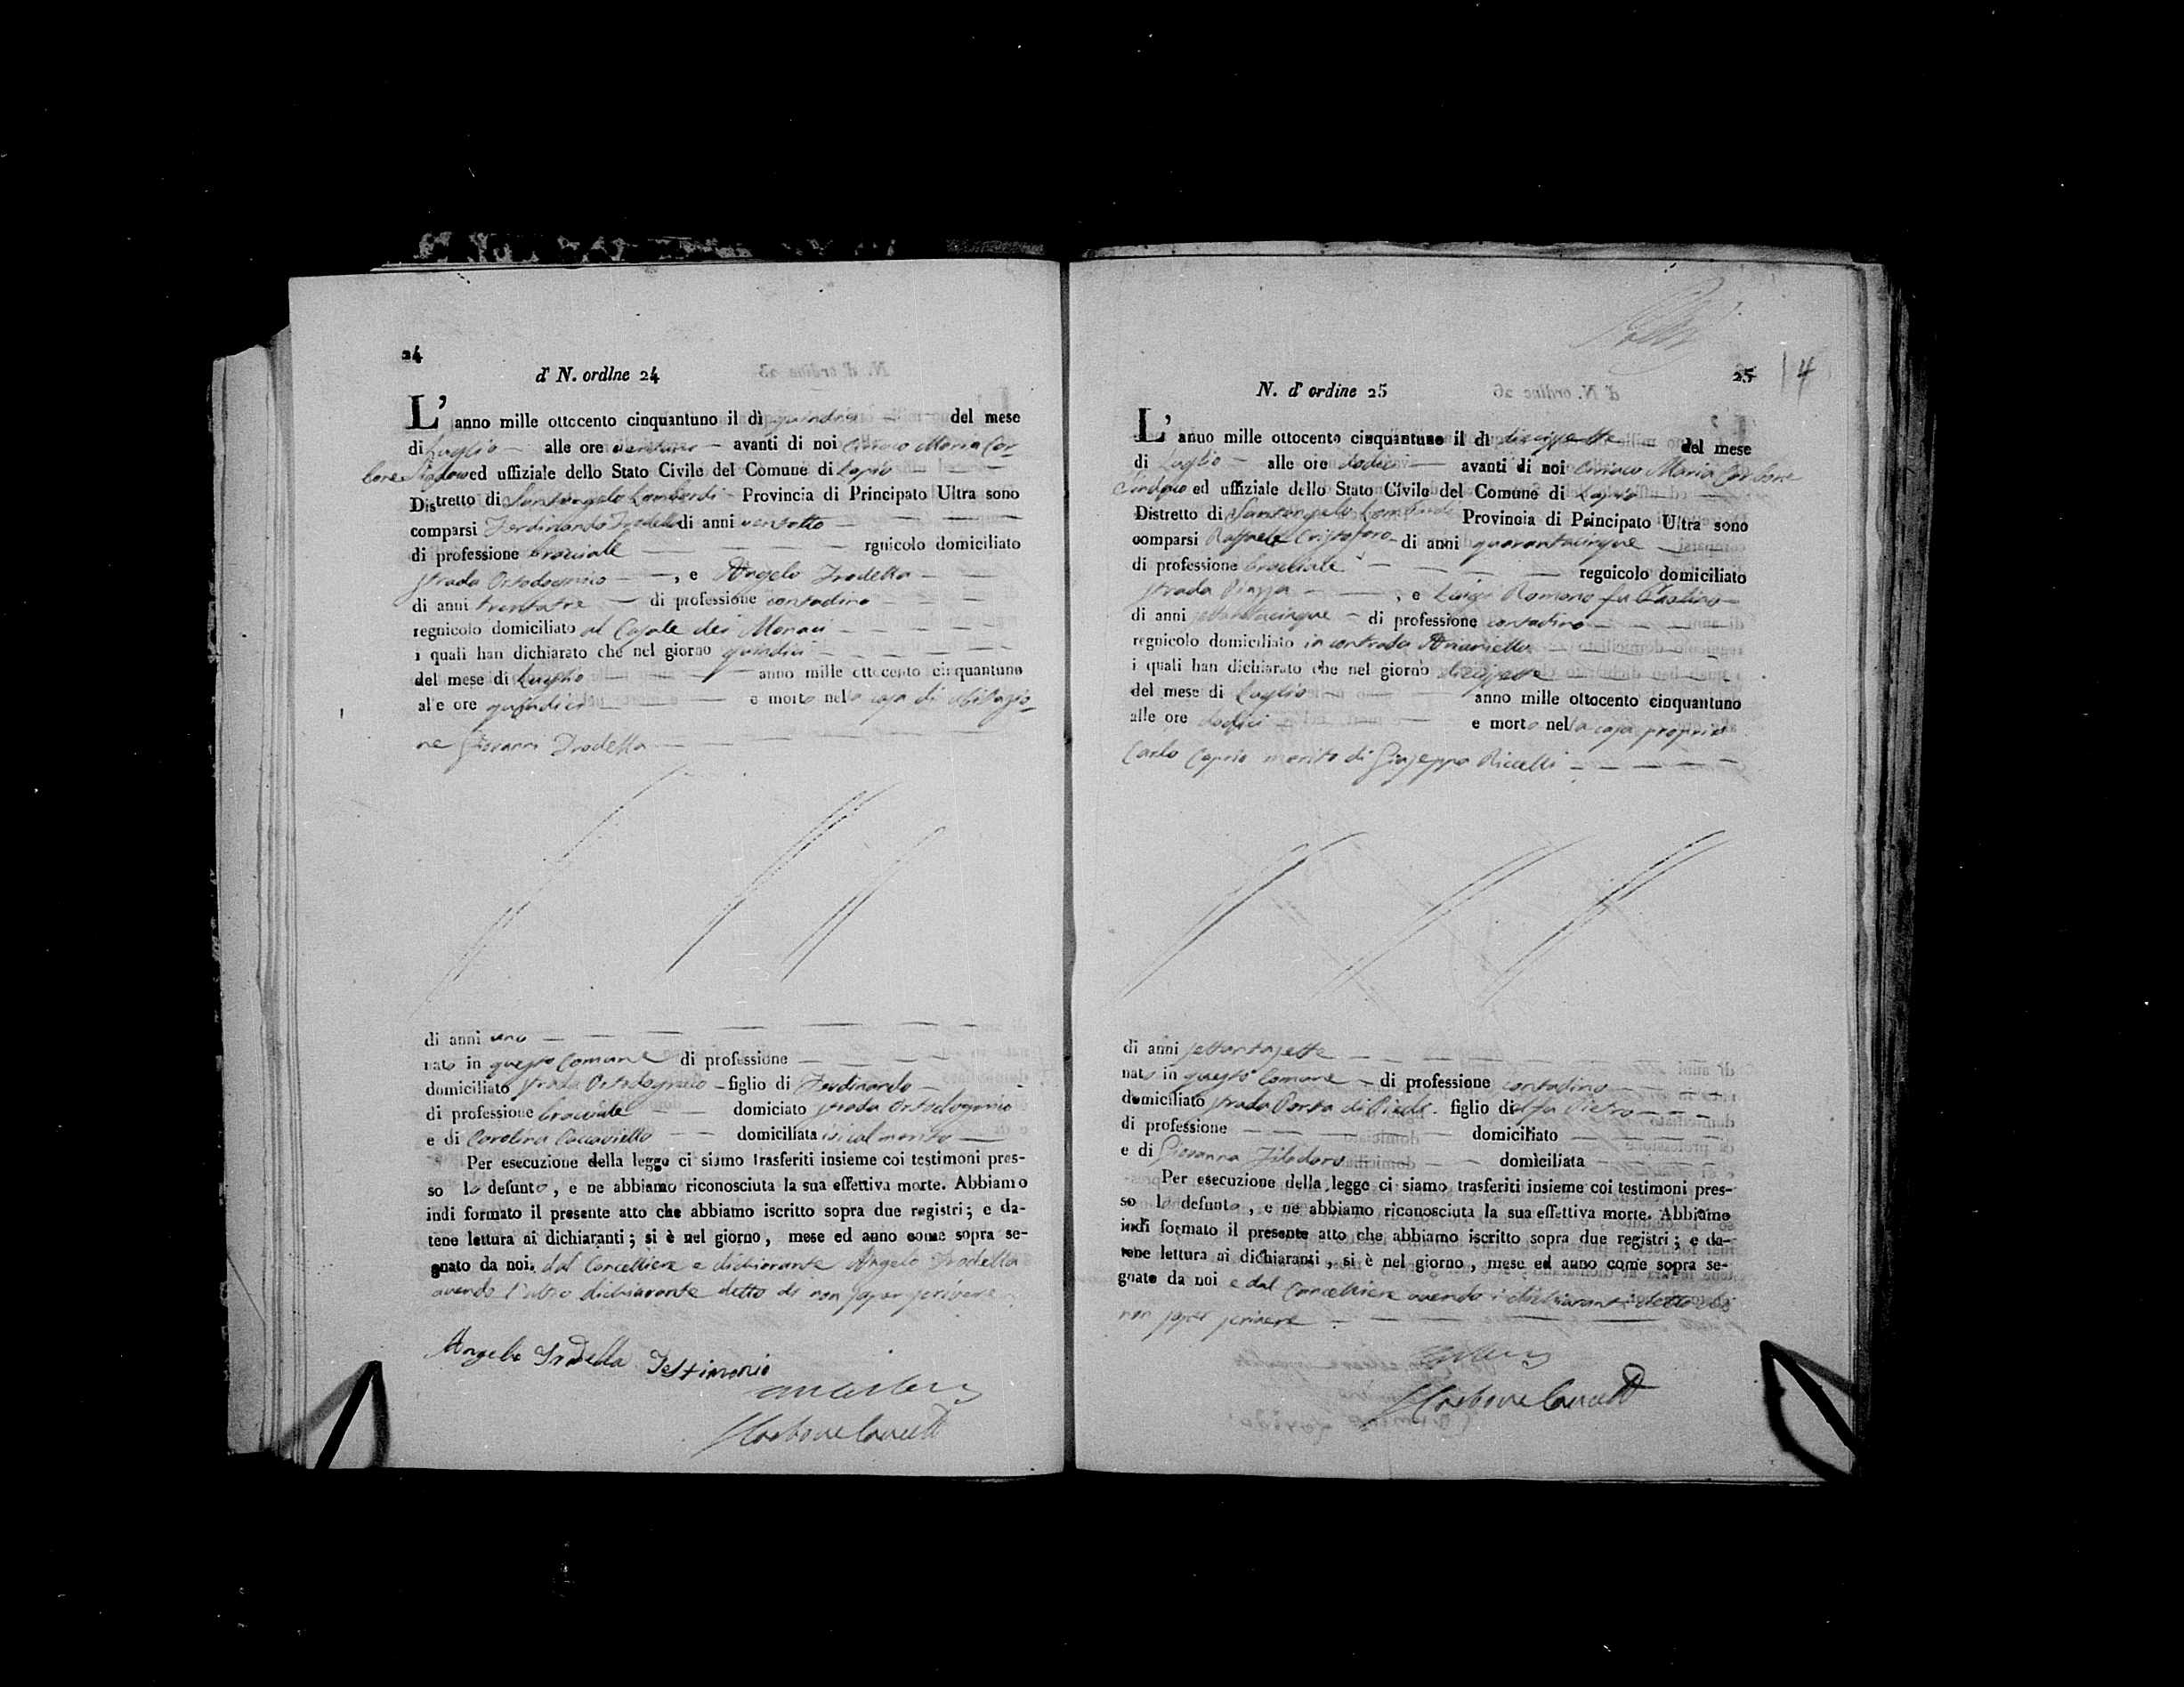 24
d' N. ordlne 24
L' anno mille ottocento cinquantuno il dì quindici del mese
di Luglio alle ore ventuno avanti di noi Ciriaco Maria Car-
bone Sindaco ed uffiziale dello Stato Civile del Comune di Lapio
Distretto di Santangelo Lombardi Provincia di Principato Ultra sono
comparsi Ferdinando Trodella di anni ventotto
di professione bracciale rgnicolo domiciliato
strada Ortodognico, e Angelo Trodella
di anni trentatre di professione contadino
regnicolo domiciliato al Casale dei Monaci
i quali han dichiarato che nel giorno quindici
del mese di Luglio anno mille ottocento cinquantuno
al'e ore quindici e morto nella casa di abitazio-
ne Giovanni Trodella
di anni uno
nato in questo Comune di professione
domiciliato strada figlio di Ferdinando
di professione bracciale domiciato strada
e di Carolina Caccaviello domiciliata ivi col marito
Per esecuzione della legge ci siamo trasferiti insieme coi testimoni pres-
so lo defunto, e ne abbiamo riconosciuta la sua effettiva morte. Abbiamo
indi formato il presente atto che abbiamo iscritto sopra due registri; e da-
tene lettura ai dichiaranti; si è nel giorno, mese ed anno come sopra se-
gnato da noi, dal Cancelliere e dichiarante Angelo Trodella
avendo l'altro dichiarante detto di non saper scrivere
Angelo Trodella Testimonio
Carbone Cancell
25
14
N. d' ordine 25
L' anuo mille ottocento cinquantuno il dì diecisette del mese
di Luglio alle ore dodici avanti di noi Ciriaco Maria Carbone
Sindaco ed uffiziale dello Stato Civile del Comune di Lapio
Distretto di Santangelo Lombardi Provincia di Principato Ultra sono
comparsi Raffaele Cristoforo di anni quarantacinque
di professione bracciale regnicolo domiciliato
strada Piazza, e Luigi Romano fu
di anni settantacinque di professione contadino
regnicolo domiciliato in contrada Arianiello
i quali han dichiarato che nel giorno diecisette
del mese di Luglio anno mille ottocento cinquantuno
alle ore dodici e morto nella casa propria
Carlo Caprio marito di Giuseppa Riccelli
di anni settantasette
nato in questo Comune di professione contadino
domiciliato strada Porta di Piedi figlio di fu Pietro
di professione domiciliato
e di Giovanna Filadoro domiciliata
Per esecuzione della legge ci siamo trasferiti insieme coi testimoni pres-
so lo defunto, e ne abbiamo riconosciuta la sua effettiva morte. Abbiamo
indi formato il presente atto che abbiamo iscritto sopra due registri; e da-
tene lettura ai dichiaranti, si è nel giorno, mese ed anno come sopra se-
gnato da noi e dal Cancelliere avendo i dichiaranti detto di
non saper scrivere
Carbone Cancell